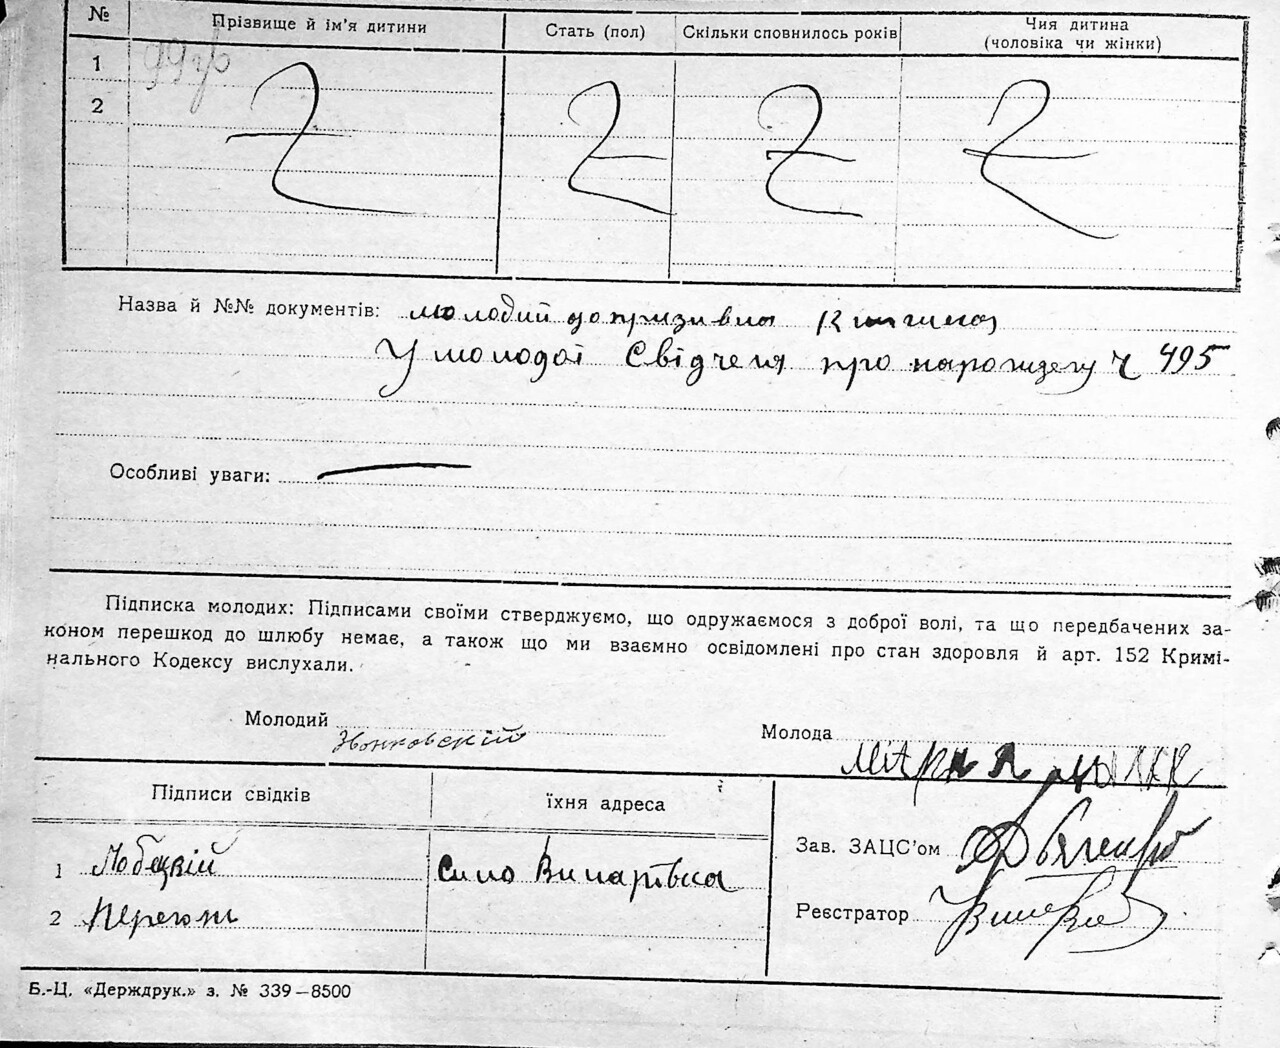 № Прізвище й ім'я дитини Стать (пол) Скільки сповнилось років Чия дитина
(чоловіка чи жінки)
1
2
Назва й №№ документів: молодий допризивна
У молодої Свідченя про народжену Ч 495
Особливі уваги:
Підписка молодих: Підписами своїми стверджуємо, що одружаємося з доброї волі, та що передбачених за-
коном перешкод до шлюбу немає, а також що ми взаємно освідомлені про стан здоровля й арт. 152 Кримі-
нального Кодексу вислухали.
Молодий Звонковскій Молода
Підписи свідків їхня адреса
Зав. ЗАЦС'ом
1 Лобецкій Село Винарівка
Реєстратор
2
Б.-Ц. «Держдрук.» з. № 339—8500